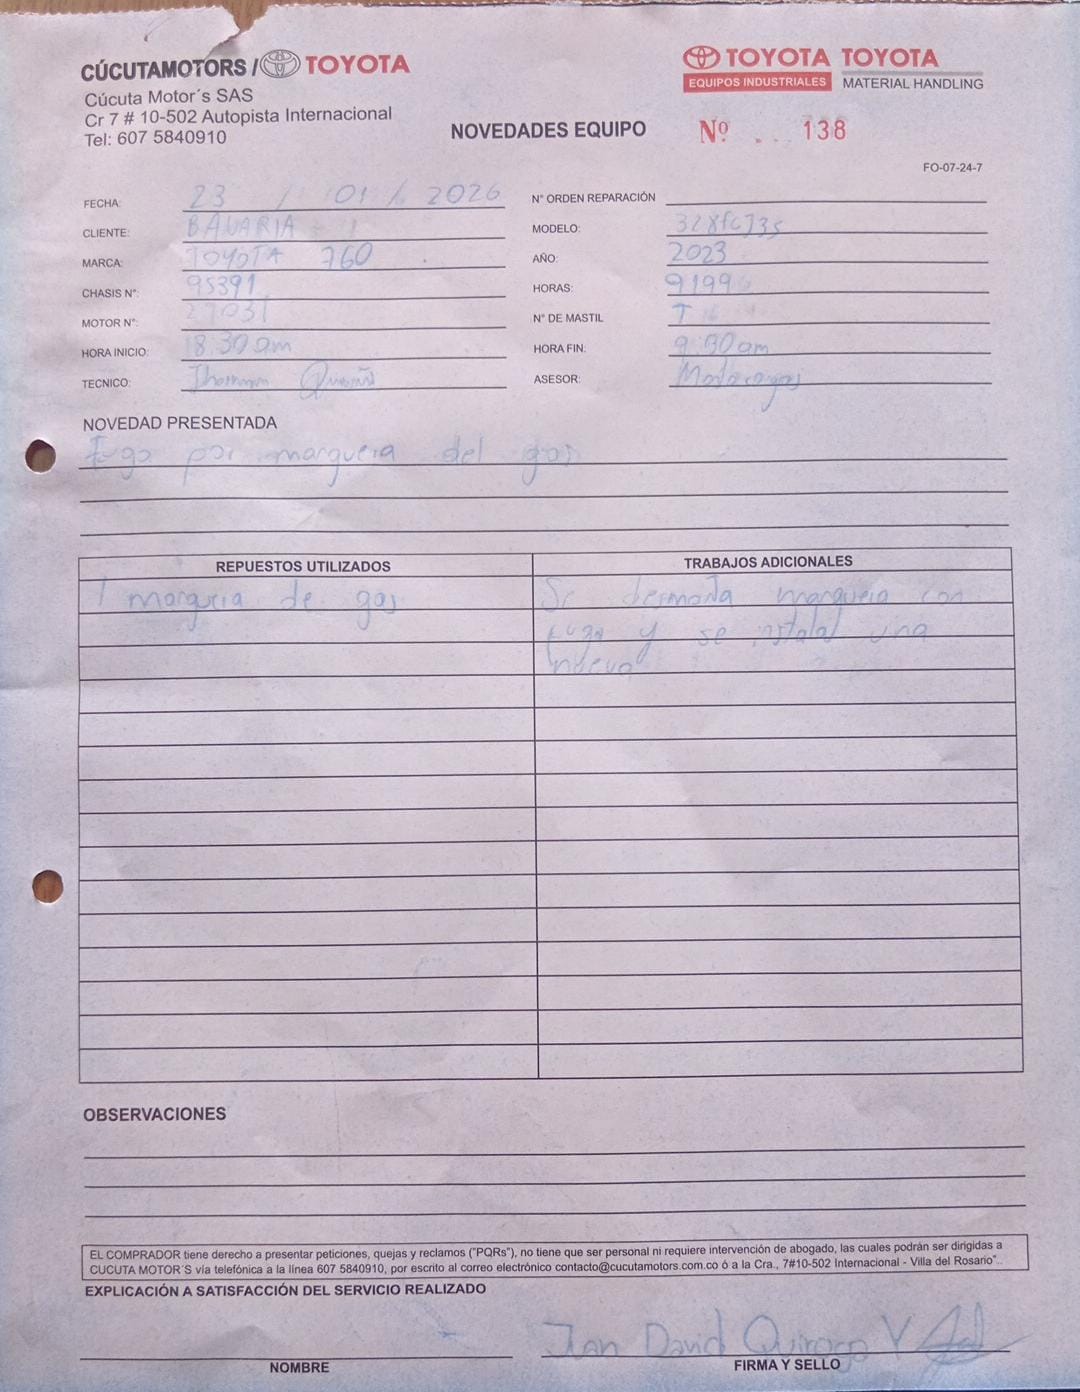 CÚCUTAMOTORS / TOYOTA
Cúcuta Motor´s SAS
Cr 7 # 10-502 Autopista Internacional
Tel: 607 5840910
TOYOTA TOYOTA
EQUIPOS INDUSTRIALES MATERIAL HANDLING
NOVEDADES EQUIPO Nº 138
FO-07-24-7
FECHA: 23 / 01 / 2026 N° ORDEN REPARACIÓN
CLIENTE: BAVARIA MODELO:
MARCA: TOYOTA 760 AÑO: 2023
CHASIS N°: 95391 HORAS: 9199
MOTOR N°: N° DE MASTIL
HORA INICIO: 8:30 am HORA FIN: 9:30am
TECNICO: ASESOR:
NOVEDAD PRESENTADA
Fuga por marguera del gas
REPUESTOS UTILIZADOS TRABAJOS ADICIONALES
1 marguria de gas Se desmonta marguera con
fuga y se instalal una
nueva
OBSERVACIONES
EL COMPRADOR tiene derecho a presentar peticiones, quejas y reclamos ("PQRs"), no tiene que ser personal ni requiere intervención de abogado, las cuales podrán ser dirigidas a
CUCUTA MOTOR´S vía telefónica a la línea 607 5840910, por escrito al correo electrónico contacto@cucutamotors.com.co ó a la Cra., 7#10-502 Internacional - Villa del Rosario"..
EXPLICACIÓN A SATISFACCIÓN DEL SERVICIO REALIZADO
Juan David Quiroga V
NOMBRE FIRMA Y SELLO